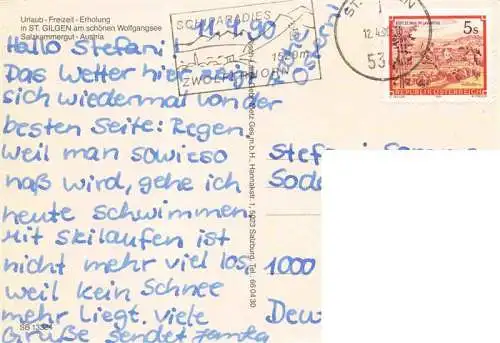 Urlaub - Freizeit - Erholung
in ST. GILGEN am schönen Wolfgangsee
Salzkammergut - Austria
11.4.90
Hallo Stefani
Das Wetter hier zeigt
sich wiedermal von der
besten Seite: Regen.
Weil man sowieso
naß wird, gehe ich
heute schwimmen.
Mit Skilaufen ist
nicht mehr viel los,
weil kein Schnee
mehr liegt. Viele
Grüße sendet
SB 13324
SCHIPARADIES
1520m
ZWÖLFERHORN
ST. GILGEN
12.4.90
53
5s
REPUBLIK ÖSTERREICH
Ges.m.b.H., Hannakstr. 1, 5023 Salzburg, Tel. 66 04 30
Stefani
Sode
1000
Deu